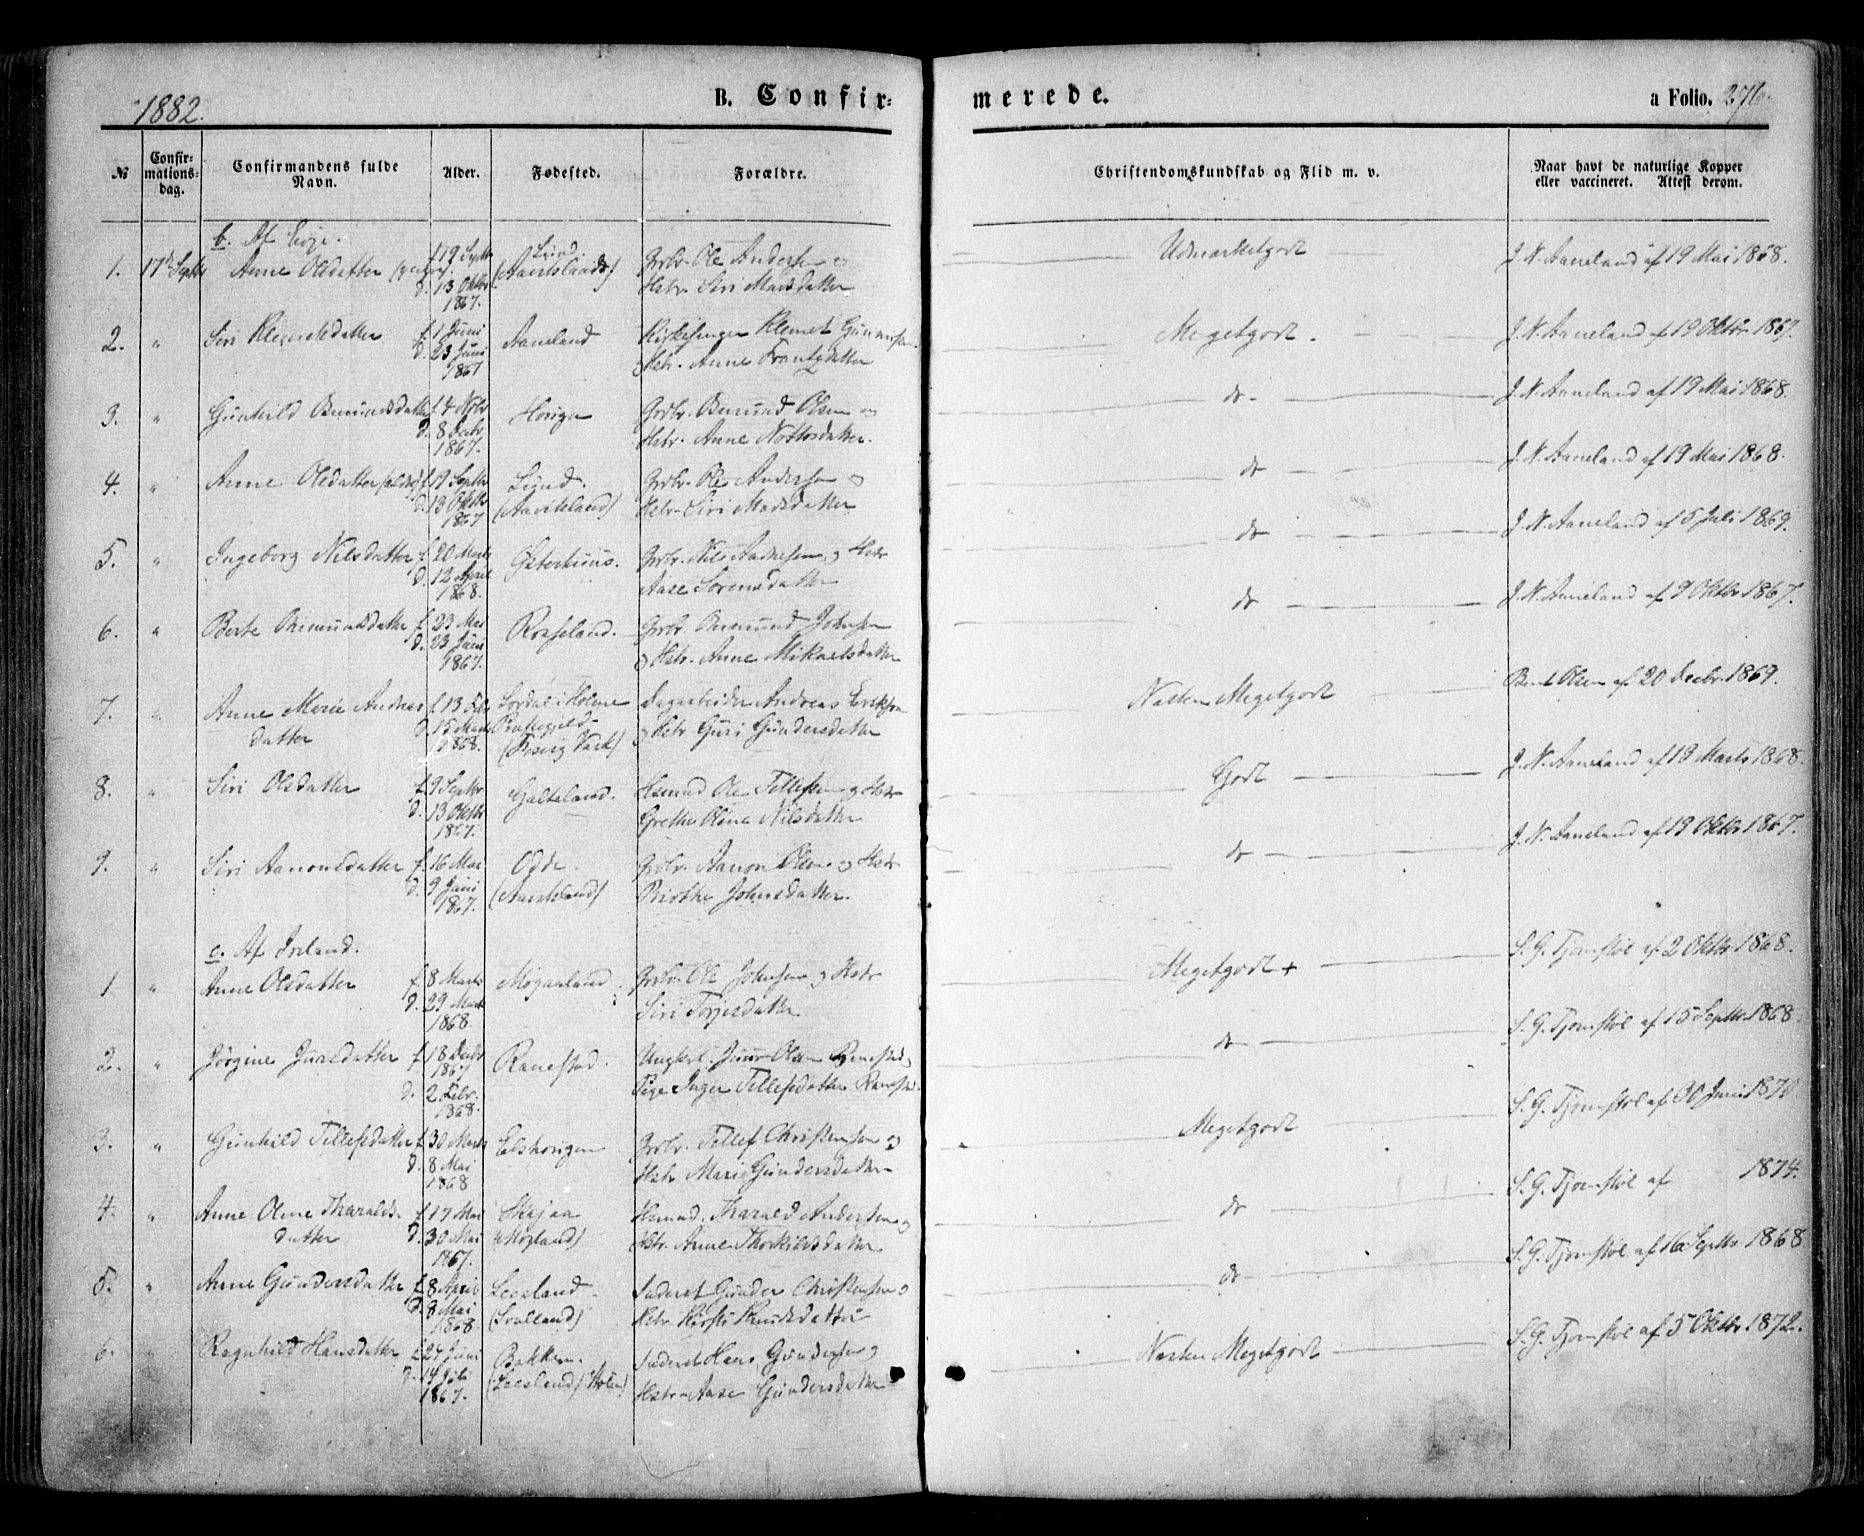 1882.
B. Confir=
merede.
a Folio. 276.
№
Confir=
mations=
dag.
Confirmandens fulde
Navn.
Alder.
Fødested.
Forældre.
Christendomskundskab og Flid m. v.
Naar havt de naturlige Kopper
eller vaccineret. Attest derom.
b. Af Evje.
1. 17 Septbr Anne Olsdatter f. 19 Septbr Lund Grbr. Ole Andersen og Udmærketgodt J. N. Aaneland af 19 Mai 1868.
d. 13 Oktbr Hstr. Siri Madsdatter
1867.
2. " Siri Klemetsdatter f. 1 Juni Aaneland Kirkesanger Klemet Gunnersen Megetgodt. J. N. Aaneland af 19 Oktbr 1867.
d. 23 Juni og Hstr. Anne Frantzdatter
1867
3. " Gunhild Osmundsdatter f. 4 Novbr Horigen Grbr. Osmund Olsen og do J. N. Aaneland af 19 Mai 1868.
d. 8 Decbr Hstr. Anne
1867.
4. " Anne Olsdatter f. 19 Septbr Lund. Grbr. Ole Andersen og do J. N. Aaneland af 19 Mai 1868.
d. 13 Oktbr Hstr. Siri Madsdatter
1867
5. " Ingeborg Nilsdatter f. 20 Marts Grbr. Nils og Hstr do J. N. Aaneland af 5 Juli 1869.
d. 12 April Aase Sørensdatter
1868.
6. " Berte Osmundsdatter f. 23 Mai Grbr. Osmund Johnsen do J. N. Aaneland af 9 Oktbr 1867.
d. 23 Juni og Hstr. Anne Mikaelsdatter
1867.
7. " Anne Marie Andreas f. 13 Febr i Dagarbeider Andreas Eriksen Næsten Megetgodt Bent Olsen af 20 Decbr 1869.
datter d. 15 Marts og Hstr Guri Gundersdatter
1868.
8. " Siri Olsdatter f. 9 Septbr Galteland. Husmd Ole Tellefsen og Hstr Godt J. N. Aaneland af 13 Marts 1868.
d. 13 Oktbr Grethe Oline Nilsdatter
1867.
9. " Siri Aanonsdatter f. 16 Mai Odde. Grbr. Aanon Olsen og Hstr do J. N. Aaneland af 19 Oktbr 1867.
d. 9 Juni Birthe Johnsdatter.
1867.
c. Af Iveland.
1 " Anne Olsdatter f. 8 Marts Grbr. Ole Johnsen og Hstr Megetgodt + S. G. Tjomstøl af 2 Oktbr 1868.
d. 29 Marts Siri Torjesdatter
1868
2. " Jørgine Jensdatter f. 18 Decbr Ranestad. Ungkrl. Olsen Ranestad og do S. G. Tjomstøl af 15 Septbr 1868.
1867
d. 2 Febr. Pige Inger Tellefsdatter
1868.
3. " Gunhild Tellefsdatter f. 30 Marts Grbr. Tellef Christensen og Megetgodt S. G. Tjomstøl af 30 Juni 1870
d. 8 Mai Hstr Marie Gundersdatter
1868
4. " Anne Oline Tharalds= f. 17 Mai Skajaa Husmd. Tharald Andersen og do S. G. Tjomstøl af 1874.
datter d. 30 Mai (Mogland) Hstr. Anne Thorkildsdatter
1867.
5. " Anne Gundersdatter f. 8 April Leesland Inderst Gunder Christensen og do S. G. Tjomstøl af 16 Septbr 1868
d. 8 Mai Hstr. Kirsti Knudsdatter
1868.
6. " Ragnhild Hansdatter f. 24 Juni Bakken Inderst Hans Gundersen og Næsten Megetgodt S. G. Tjomstøl af 5 Oktbr 1872.
d. 14 Juli Hstr. Aase Gundersdatter
1867.